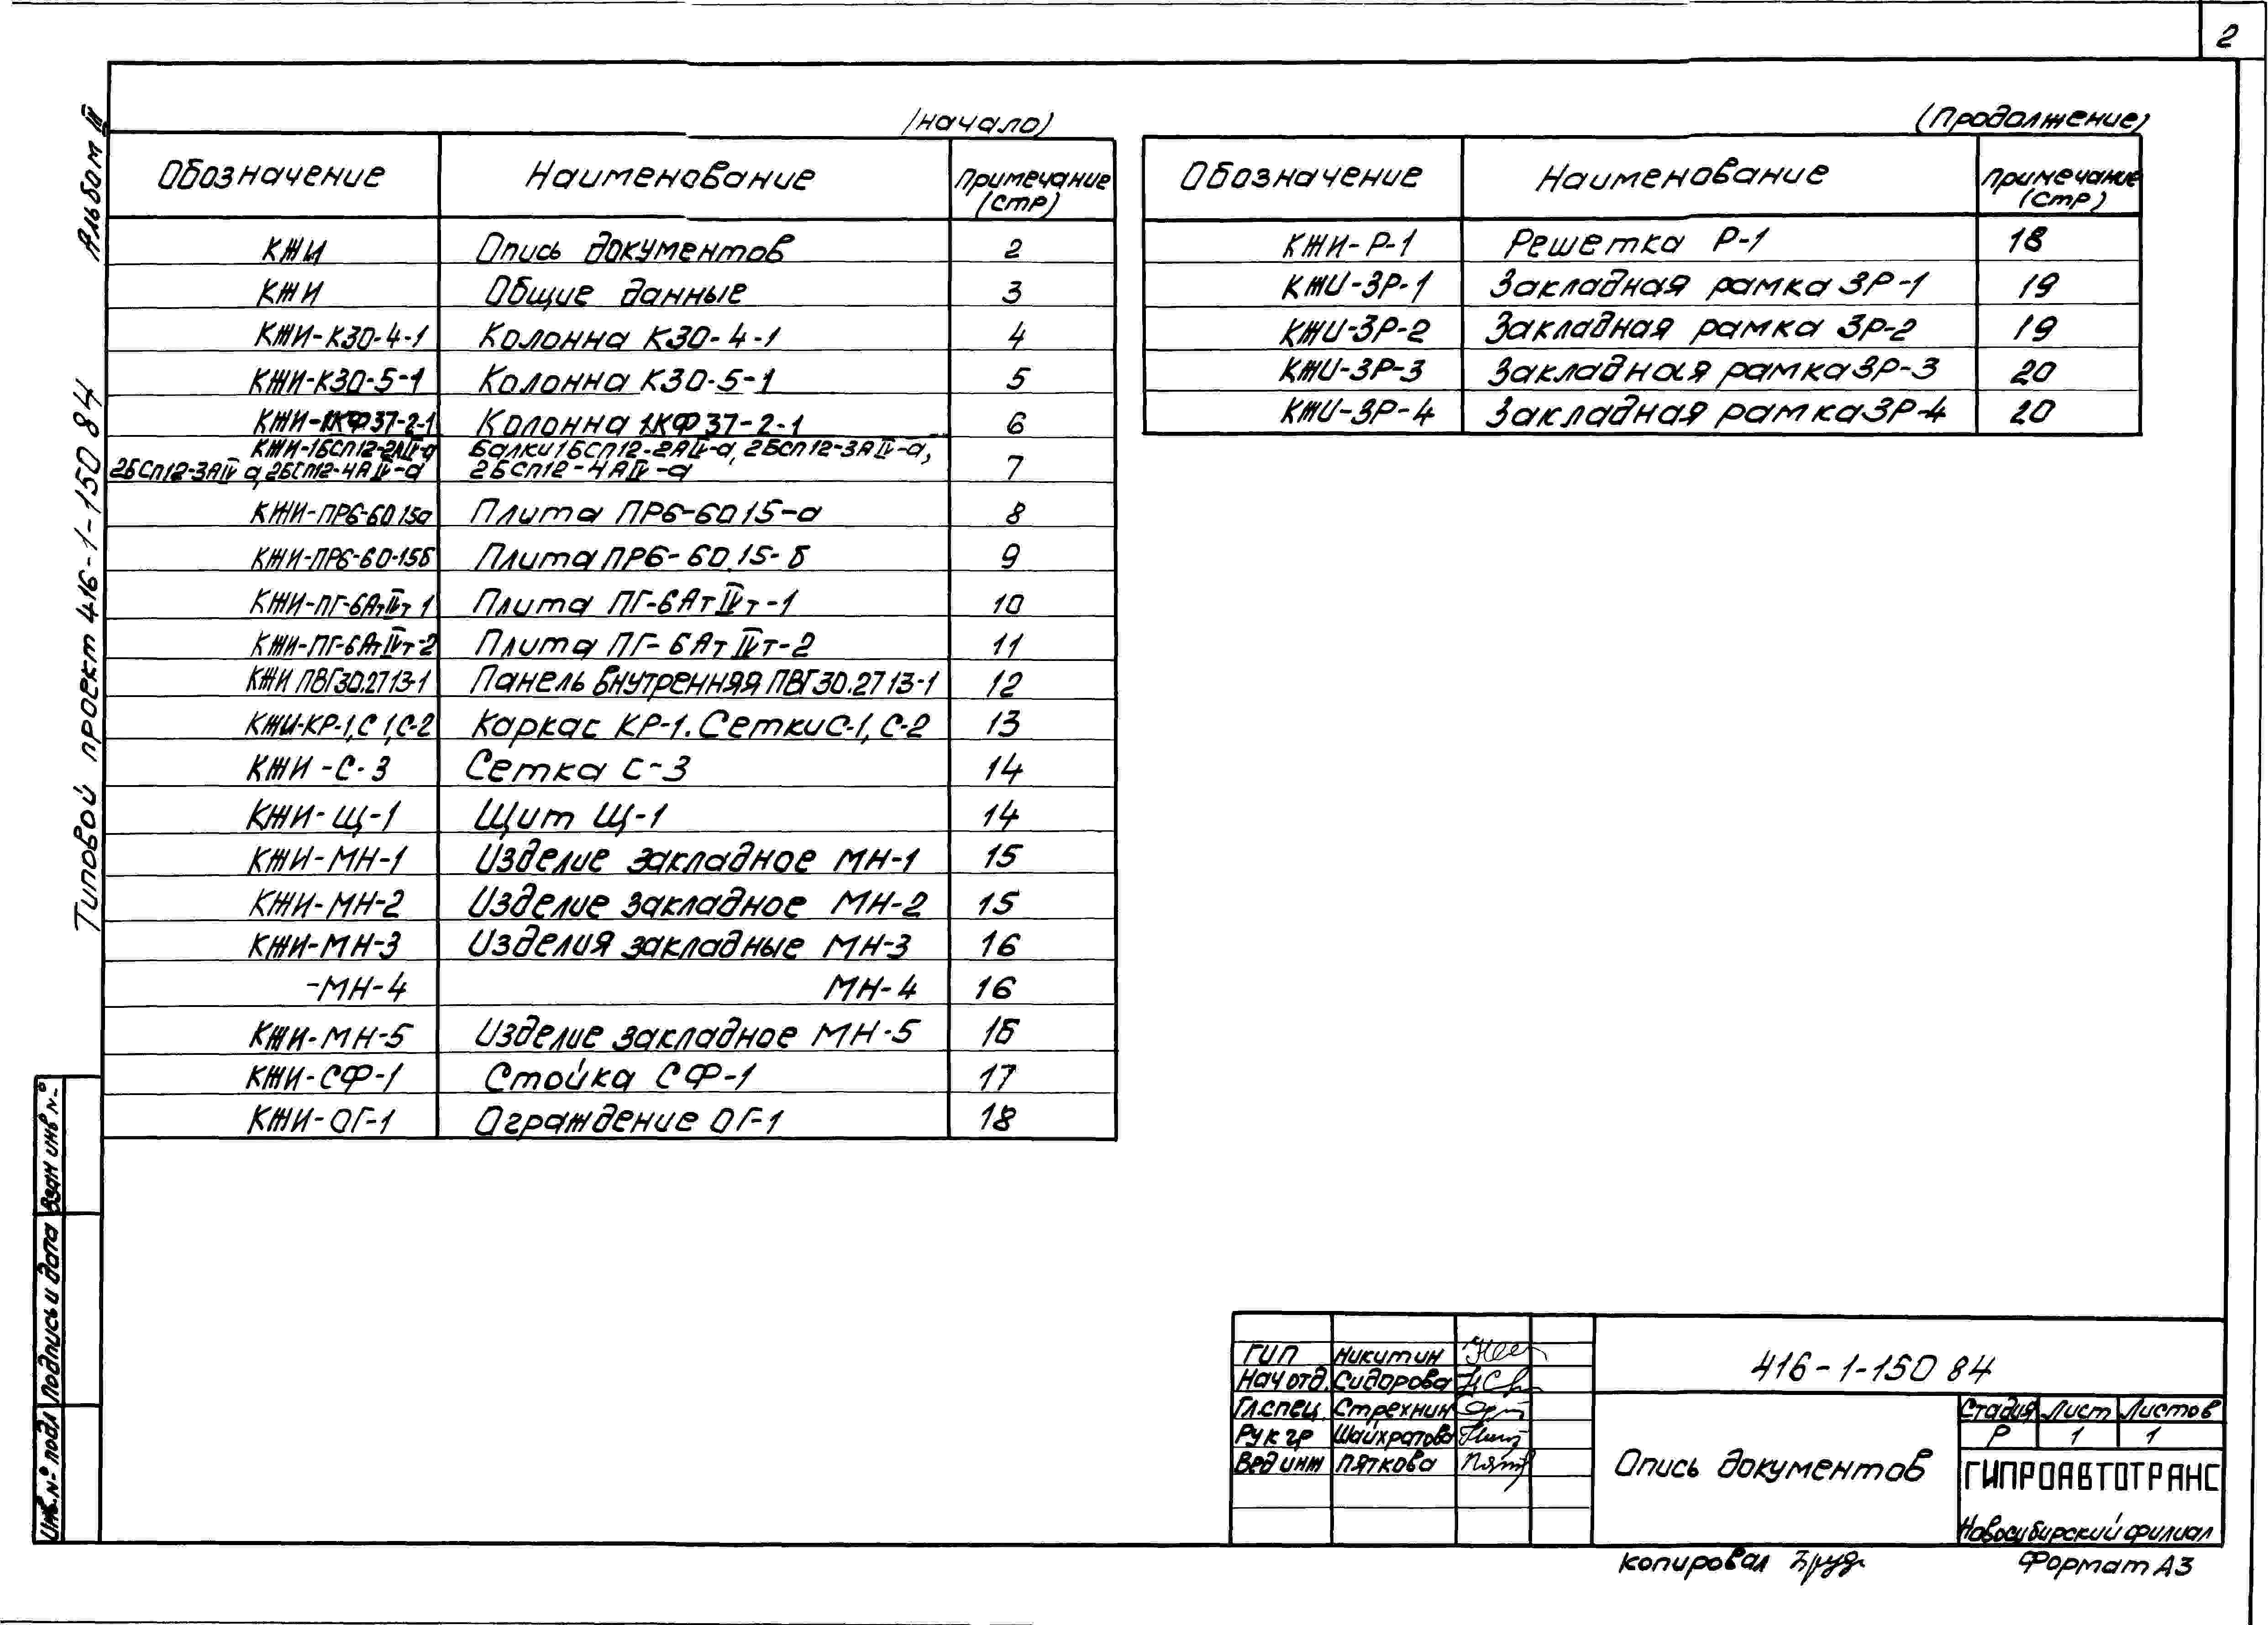 2
Альбом III
Типовой проект 416-1-150 84
(начало)
Обозначение Наименование Примечание (стр)
КЖИ Опись документов 2
КЖИ Общие данные 3
КЖИ-К30-4-1 Колонна К30-4-1 4
КЖИ-К30-5-1 Колонна К30-5-1 5
КЖИ-1КФ37-2-1 Колонна 1КФ37-2-1 6
КЖИ-1БСП12-2АIV-а Балки 1БСП12-2АIV-а, 2БСП12-3АIV-а,
2БСП12-3АIV а, 2БСП12-4АIV-а 2БСП12-4АIV-а 7
КЖИ-ПР6-60.15а Плита ПР6-60 15-а 8
КЖИ-ПР6-60-15б Плита ПР6-60.15-б 9
КЖИ-ПГ-6АтIVт 1 Плита ПГ-6АтIVт-1 10
КЖИ-ПГ-6АтIVт-2 Плита ПГ-6АтIVт-2 11
КЖИ ПВГ30.27 13-1 Панель внутренняя ПВГ30.27 13-1 12
КЖИ-КР-1, С 1, С-2 Каркас КР-1. Сетки С-1, С-2 13
КЖИ-С-3 Сетка С-3 14
КЖИ-Щ-1 Щит Щ-1 14
КЖИ-МН-1 Изделие закладное МН-1 15
КЖИ-МН-2 Изделие закладное МН-2 15
КЖИ-МН-3 Изделия закладные МН-3 16
-МН-4 МН-4 16
КЖИ-МН-5 Изделие закладное МН-5 16
КЖИ-СФ-1 Стойка СФ-1 17
КЖИ-ОГ-1 Ограждение ОГ-1 18
(Продолжение)
Обозначение Наименование Примечание (стр)
КЖИ-Р-1 Решетка Р-1 18
КЖИ-ЗР-1 Закладная рамка ЗР-1 19
КЖИ-ЗР-2 Закладная рамка ЗР-2 19
КЖИ-ЗР-3 Закладная рамка ЗР-3 20
КЖИ-ЗР-4 Закладная рамка ЗР-4 20
Взам инв №
Подпись и дата
Инв. № подл
ГИП Никитин
Нач отд. Сидорова
Гл.спец. Стрехнин
Рук гр Шайхратова
Вед инж Пяткова
416-1-150 84
Опись документов
Стадия Лист Листов
Р 1 1
ГИПРОАВТОТРАНС
Новосибирский филиал
копировал
Формат А3